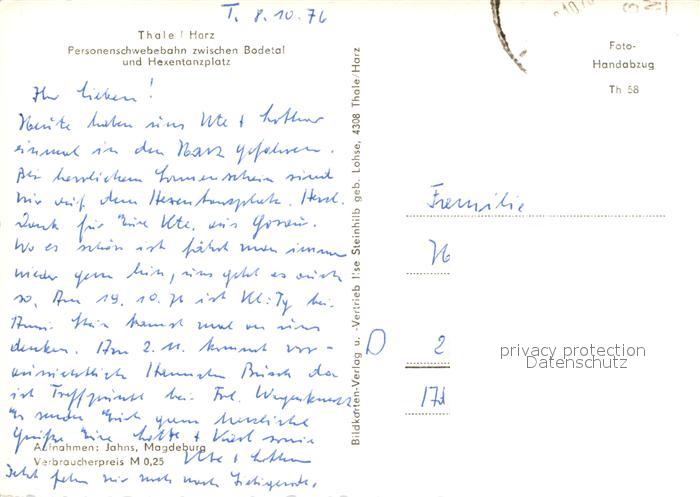 T. 8.10.76
Thale / Harz
Personenschwebebahn zwischen Bodetal
und Hexentanzplatz
Ihr Lieben!
Heute haben uns Ute + Lothar
einmal in den Harz gefahren.
Bei herrlichem Sonnenschein sind
wir auf dem Hexentanzplatz. Herzl.
Dank für Eure Kte. aus
Wo es schön ist fährt man immer
wieder gern hin, uns geht es auch
so. Am 19.10.76 ist
denken. Am 2.11. kommt vor-
aussichtlich Hannchen Busch da
ist Treffpunkt bei Frl.
Es senden Euch ganz herzliche
Grüße Eure Lotte + Karl sowie
Ute + Lothar
Aufnahmen: Jahns, Magdeburg
Verbraucherpreis M 0,25
Jetzt fahren wir noch nach
Bildkarten-Verlag u. -Vertrieb Ilse Steinhilb geb. Lohse, 4308 Thale/Harz
Foto-
Handabzug
Th 58
Familie
D 2
privacy protection
Datenschutz